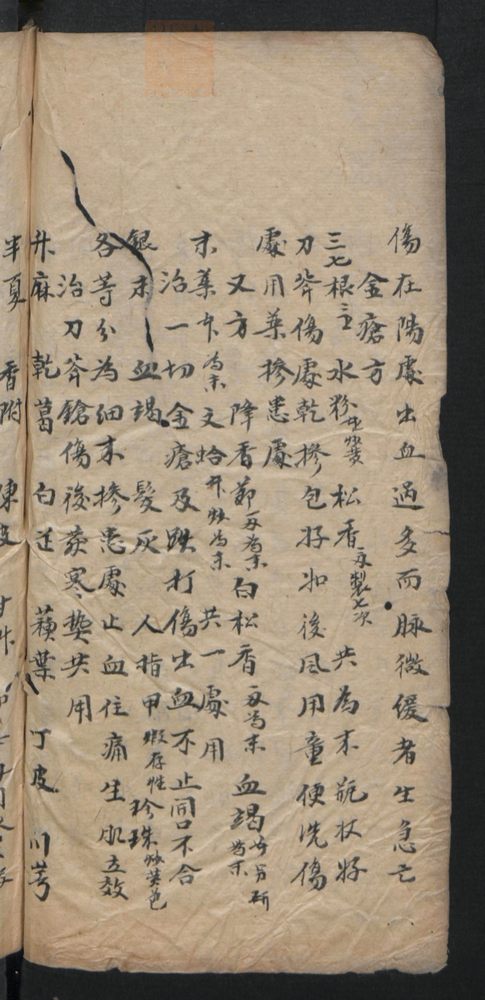 傷在陽處出血過多而脉微緩者生急亡
金瘡方
三七根三主水粉松香製七次共為末瓶收好
刀斧傷處乾摻包好如後風用童便洗傷
處用藥摻患處
又方降香節為末白松香為末血竭為末
末葉為末文蛤為末共一處用
治一切金瘡及跌打傷出血不止間口不合
銀末血竭髮灰人指甲煅存性珍珠煅黃色
各等分為細末摻患處止血住痛生肌立效
治刀斧鎗傷後發寒熱共用
升麻乾葛白芷蘓葉丁皮川芎
半夏香附陳皮